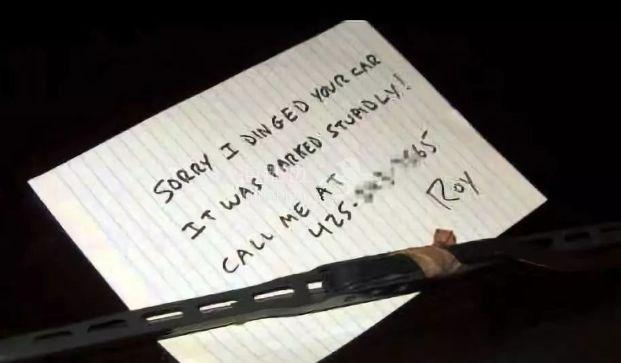 SORRY I DINGED YOUR CAR
IT WAS PARKED STUPIDLY!
CALL ME AT
425- 65
ROY